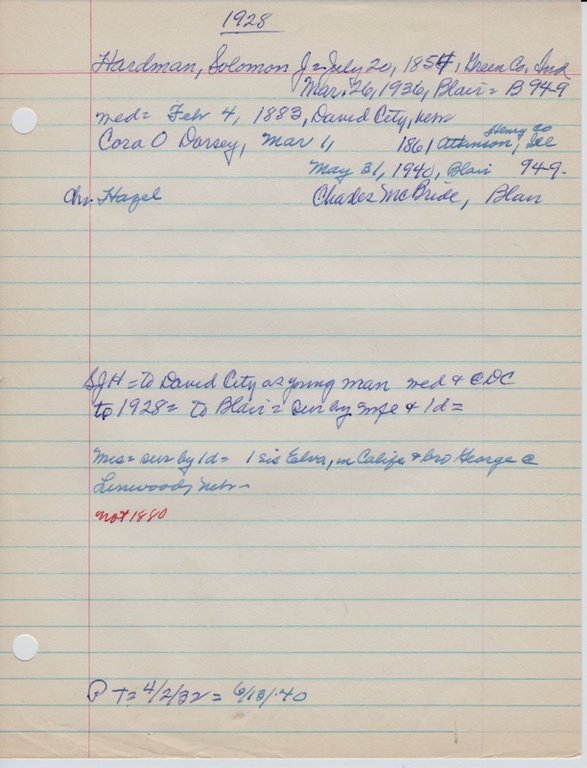 1928
Hardman, Solomon J = July 20, 1854, Green Co, Ind
Mar. 26, 1936, Blair = B 949
wed = Feb 4, 1883, David City, Nebr
Henry Co
Cora O Dorsey, Mar 1, 1861 Atkinson, Ill
May 31, 1940, Blair 949-
Chr Hazel Charles McBride, Blair
SJH = to David City as young man wed + @ DC
to 1928 = to Blair = sur by wife & 1d =
Mrs = sur by 1d = 1 sis Elva, in Calif & bro George @
Linwood, Nebr -
not 1880
P T = 4/2/32 = 6/13/40